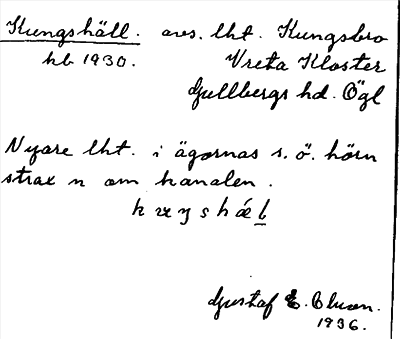 Kungshäll. avs. lht. Kungsbro
hb 1930. Vreta Kloster
Gullbergs hd. Ögl
Nyare lht. i ägornas s. ö. hörn
strax n om kanalen.
Gustaf E.
1936.